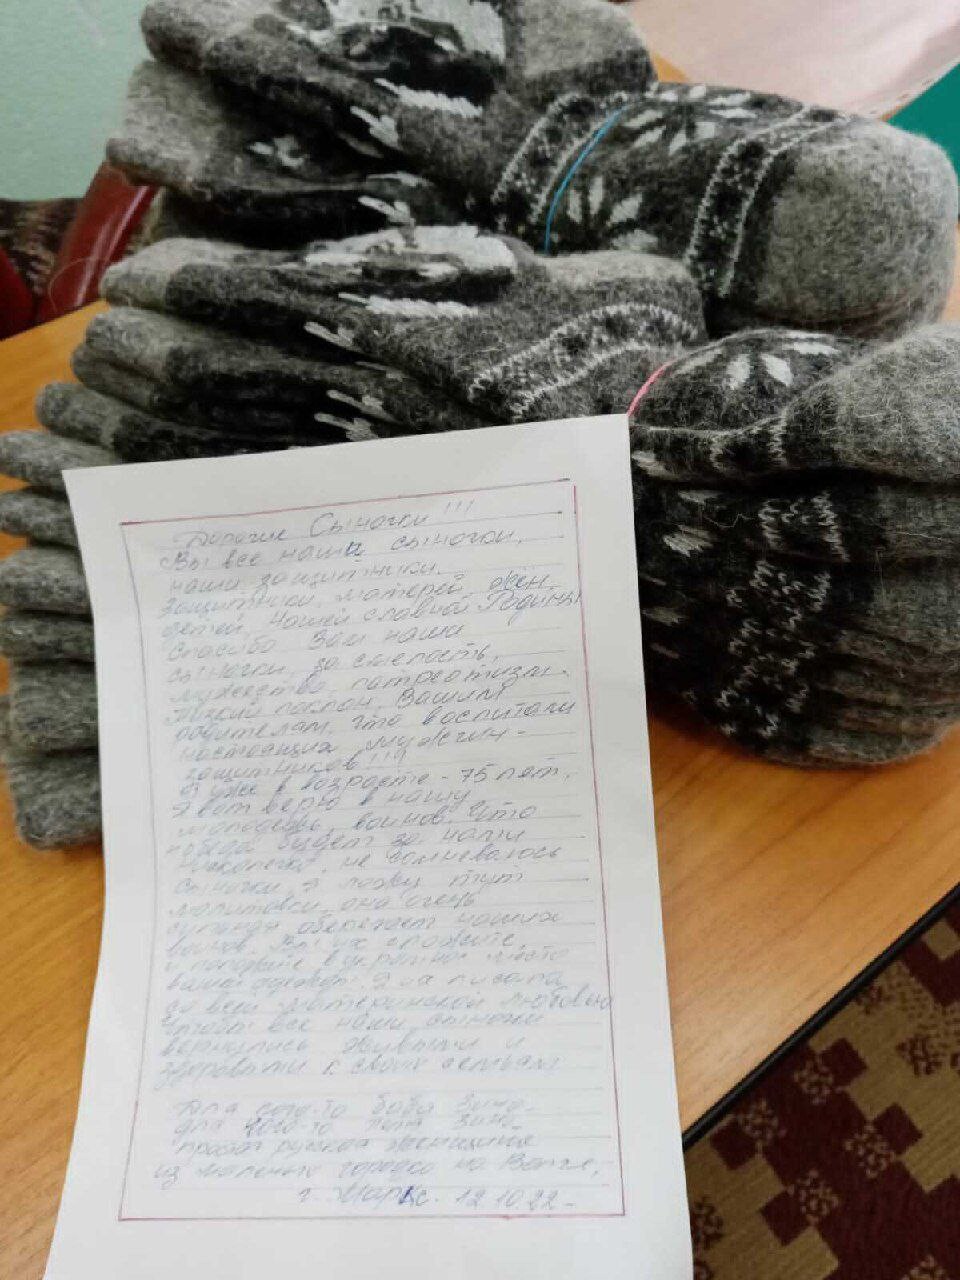 Дорогие Сыночки!!!
Вы все наши сыночки,
наши защитники.
Защитники матерей жён,
детей, нашей славной Родины
Спасибо Вам наши
сыночки, за смелость,
мужество, патреотизм.
Низкий поклон, Вашим
родителям, что воспитали
настоящих мужчин-
защитников!!!
Я уже в возрасте - 75 лет,
Я вот верю в нашу
молодежь, воинов. Что
победа будет за нами
нисколечко не сомневаюсь
сыночки, я ложу тут
молитовки, она очень
сильная оберегает наших
воинов. Вы их сложите,
и положите в укромное место
вашей одежды. Я их писала
со всей материнской любовью
чтобы все наши сыночки
вернулись живыми и
здоровыми к своим семьям
Для кого-то баба Зина-
для кого-то тётя Зина-
простая русская женщина
из маленького городка на Волге,
г. Маркс. 12.10.22-